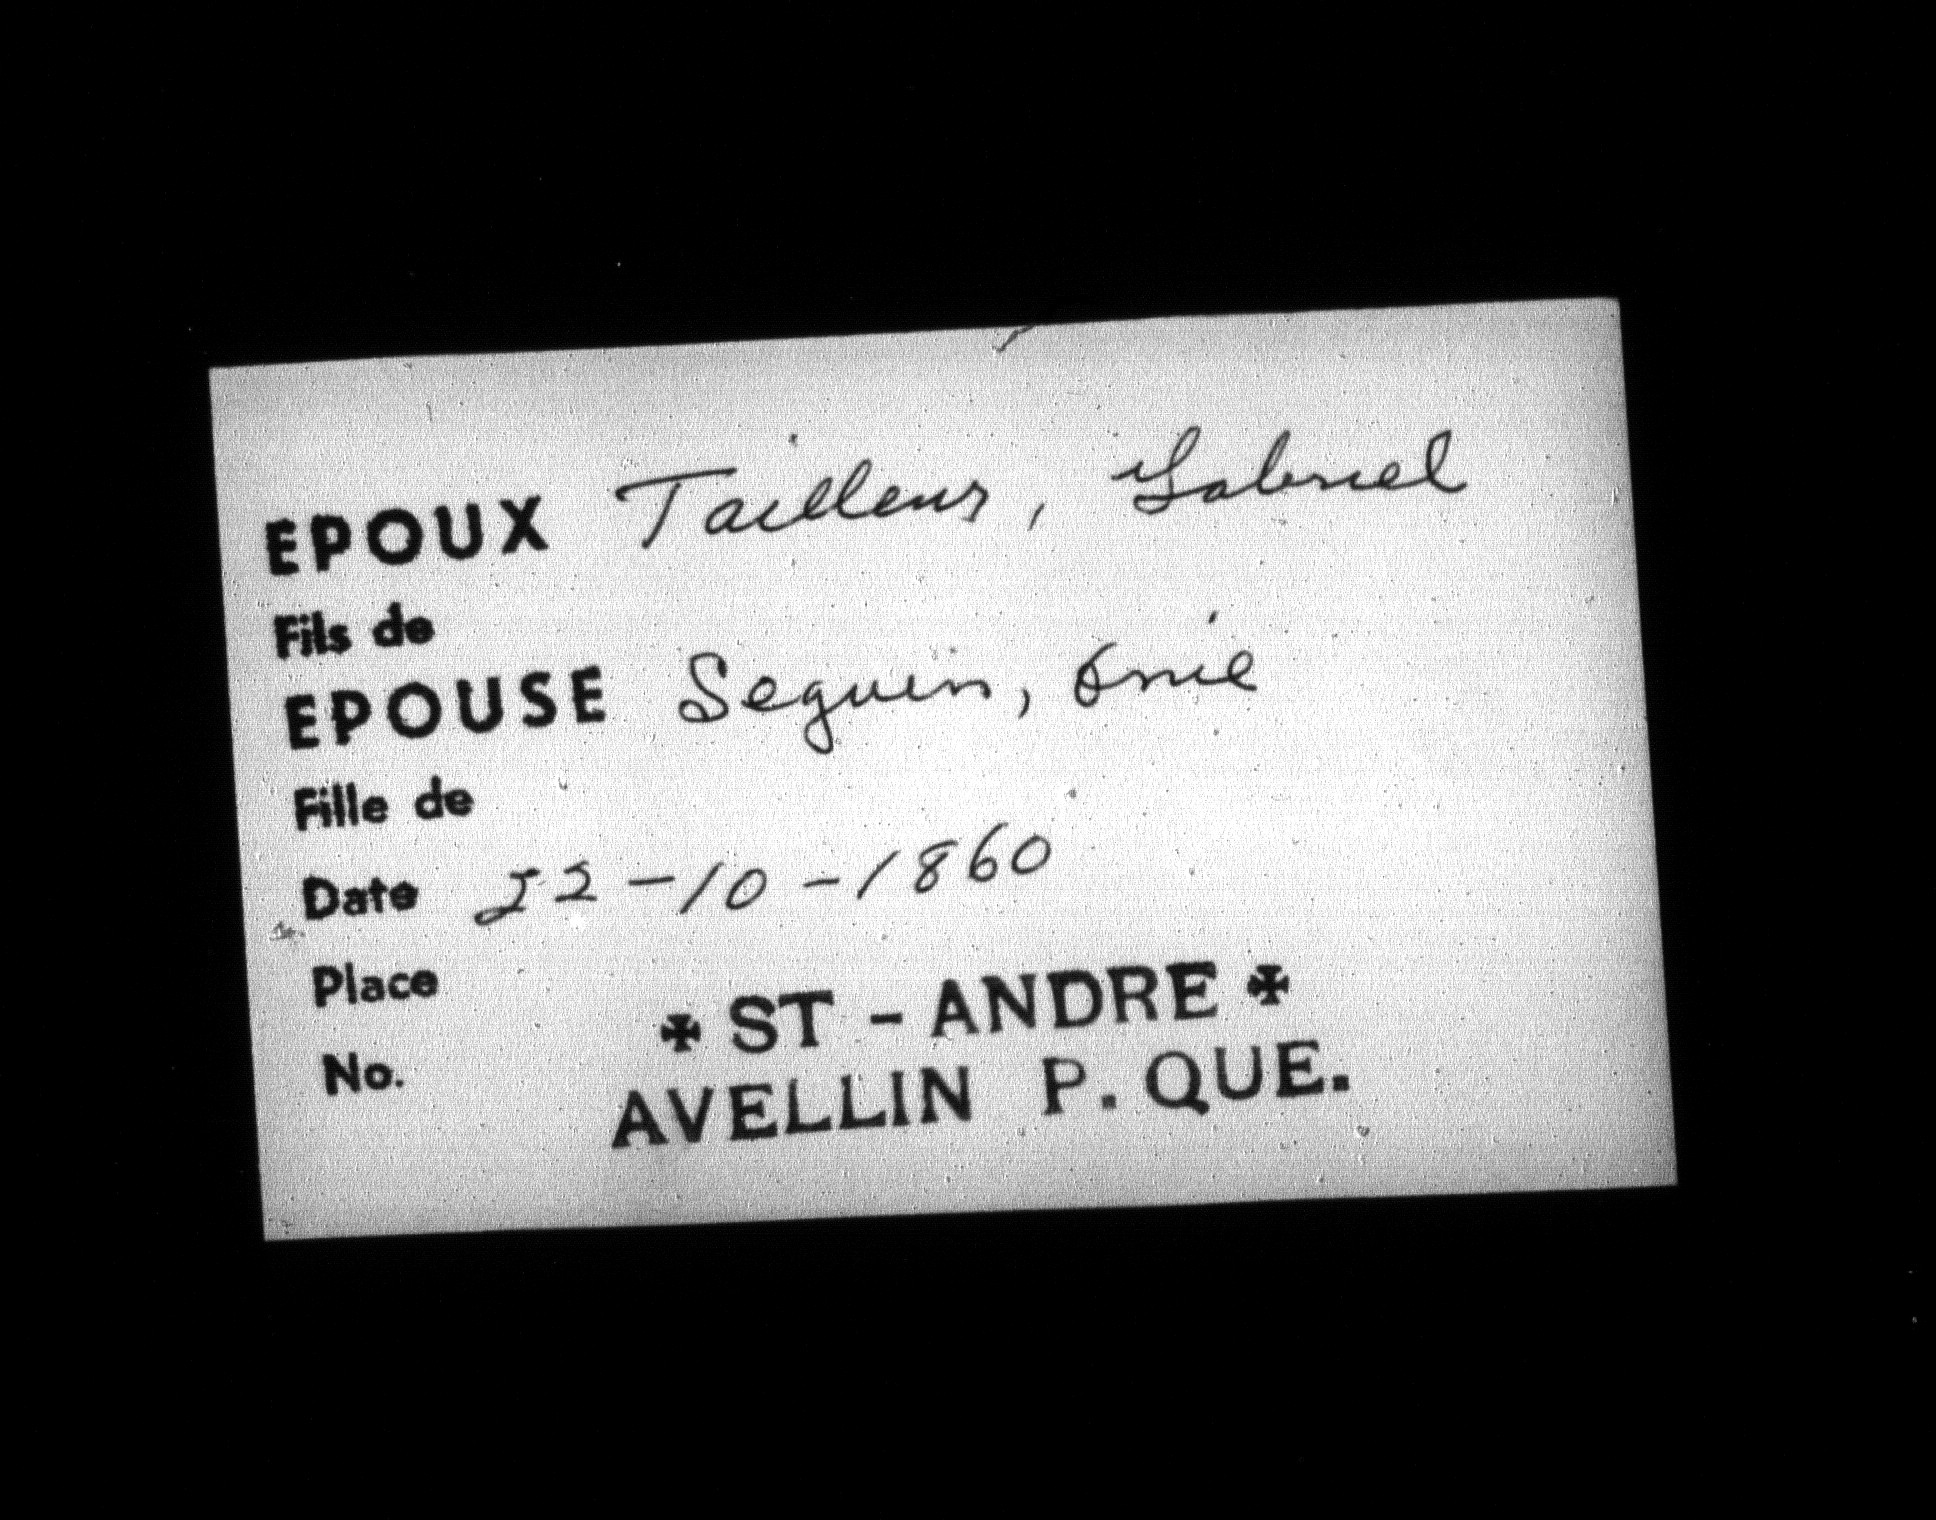 EPOUX Tailleur, Gabriel
Fils de
EPOUSE Seguin,
Fille de
Date 22-10-1860
Place
No.
✠ ST-ANDRE ✠
AVELLIN P. QUE.